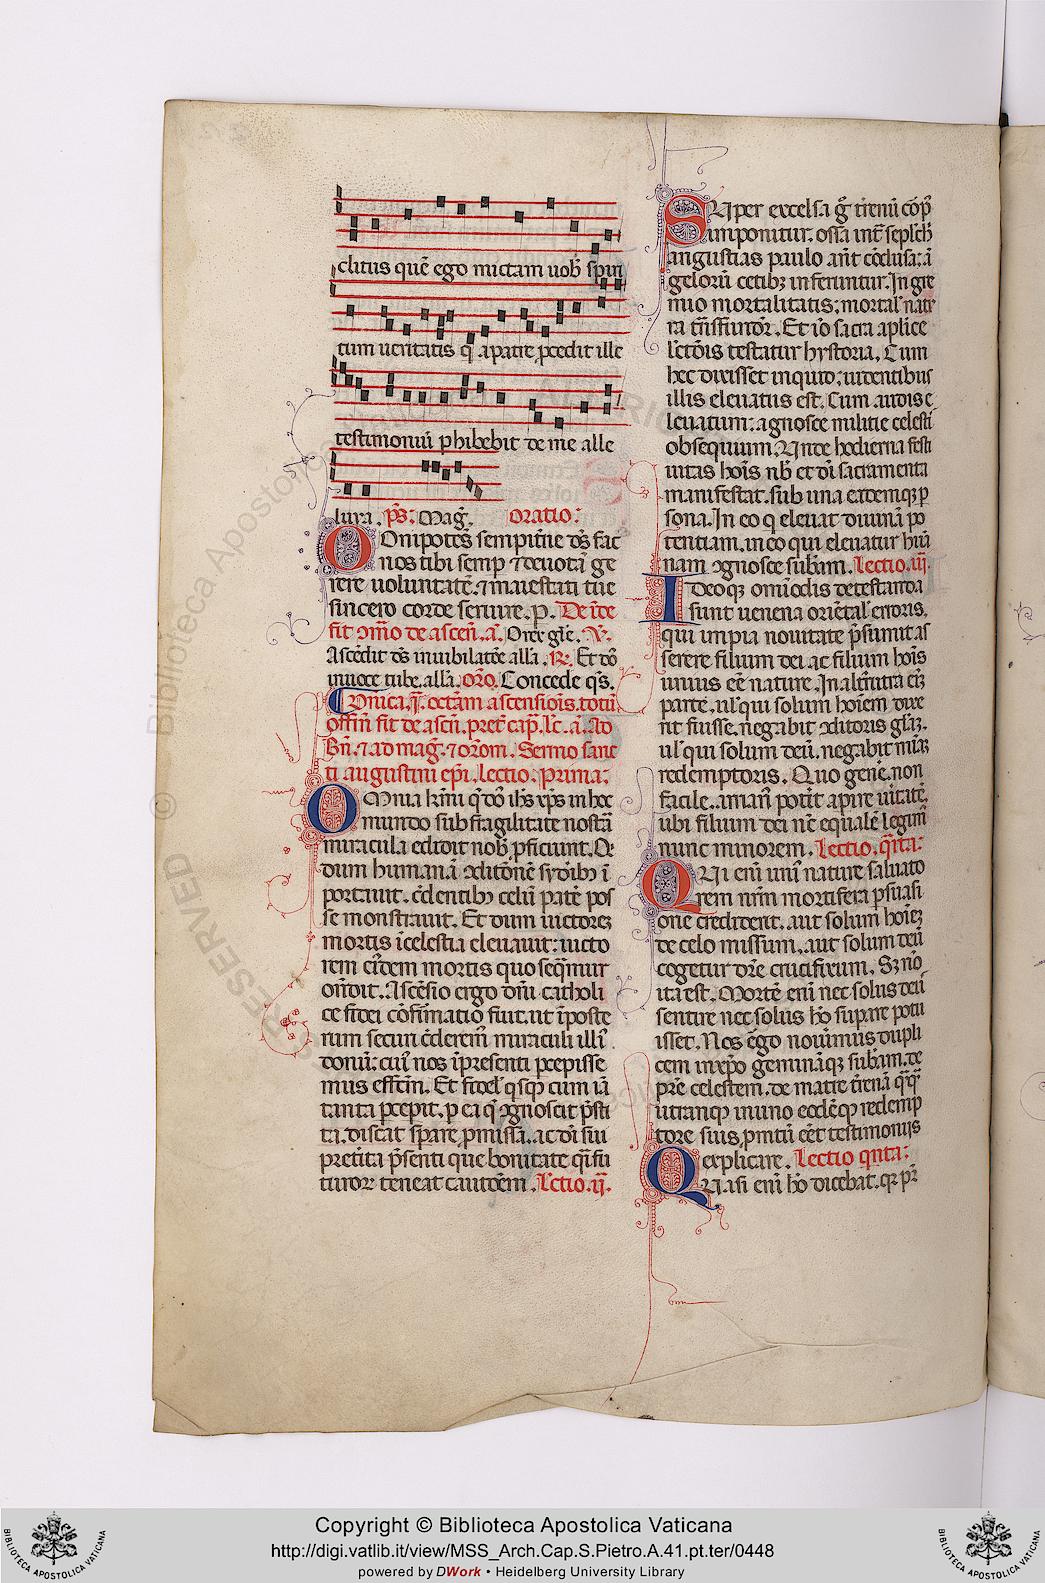 clitus quē ego mictam uob̄ spiri
tum ueritatis q̄ a patre ꝓcedit ille
testimoniū ꝑhibebit de me alle
luya. p̄s. Mag̅. Oratio.
Omnipotēs sempit̄ne ds̄ fac
nos tibi semꝑ ⁊ deuotā ge
rere uoluntatē. ⁊ maiestati tue
sincero corde seruire. p. De inde
fit ɔm̄o de ascēn. a. O rex gl̄e. V.
Ascēdit ds̄ in iubilatōe alla. R. Et dō
in uoce tube. alla. or̄o. Concede q̄s.
Dn̄ica. i. infra octāam ascensiōis. totū
offm̄ fit de ascēn. pret̄ cap. lc̄. a. Ad
Bn̄. ⁊ ad mag̅. ⁊ or̄om. Sermo sanc
ti augustini ep̄i. lectio. prima.
Omnia kr̄mi q̄ dō ihs xp̄s in hoc
mundo sub fragilitate nostrā
miracula edidit nob̄ ꝓficiunt. Q̄
dum humanā ɔditōnē syderib; ī
portauit. c̄dentib; celū patē pos
se monstrauit. Et dum uictorez
mortis ī celestia eleuauit: uicto
rem ēidem mortis quo seq̄mur
ondit. Ascēsio ergo dn̄i catholi
ce fidei cōfirmatio fuit. ut ī poste
rum securi c̄derem̄ miraculi illī
donū: cuī nos ī presenti ꝑcepisse
mus effctm̄. Et fidel' qsq̄ cum iā
tanta ꝑcepit. ꝑ ea q̄ ɔgnoscit p̄sti
ta. discat sꝑare ꝓmissa. ac dī sui
pret̄ita p̄senti que bonitate q̄i fu
turoꝝ teneat cautōem. Lctio. ij.
Super excelsa g̃ trēnū corꝑ
imponitur. ossa int̄ sepulcr̄
angustias paulo ant̄ cōclusa: ā
gelorū cetib; inferuntur. In gre
mio mortalitatis: mortal' natu
ra trāsfundit̄. Et iō sacra aplice
lectōis testatur hystoria. Cum
hec dixisset inquid; uidentibus
illis eleuatus est. Cum audis e
leuatum: agnosce militie celesti
obsequium. Unde hodierna festi
uitas hoīs nb̄ et dī sacramenta
manifestat. sub una eademq; ꝑ
sona. In eo q̄ eleuat diuinā po
tentiam. in eo qui eleuatur hūa
nam ɔgnosce subam. Lectio. iij.
Ideoq; om̄iōdis detestanda
sunt uenena oriētal' erroris.
qui impia nouitate p̄sumit as
serere filium dei ac filium hoīs
unius eē nature. In alt̄rutra eī;
partē. ul' qui solum hoīem dixe
rit fuisse. negabit ɔditoris gl̄az.
ul' qui solum deū. negabit miaz
redemptoris. Quo gene. non
facile. arriani potit̄ apire uitatē.
ubi filium dei nc̄ equalē legim̄
nunc minorem. Lectio. qr̄ta.
Qui enī unī nature saluato
rem nr̄m mortifera psuasi
one crediderit. aut solum hoīez
de celo missum. aut solum deū
cogetur dr̄e crucifixum. Sz nō
ita est. Mortē enī nec solus deū
sentire nec solus ho supare potu
isset. Nos ēgo nouimus dupli
cem in xp̄o gemināq; subam. de
pr̄e celestem. de matre t̄renā q̄q̄
utranq; in uno eodēq; redemp
tore suis ꝓmtū eēt testimoniis
explicare. Lectio qnta.
Quasi enī ho dicebat. qr pr̄
Copyright © Biblioteca Apostolica Vaticana
http://digi.vatlib.it/view/MSS_Arch.Cap.S.Pietro.A.41.pt.ter/0448
powered by DWork • Heidelberg University Library
BIBLIOTECA APOSTOLICA VATICANA
BIBLIOTECA APOSTOLICA VATICANA